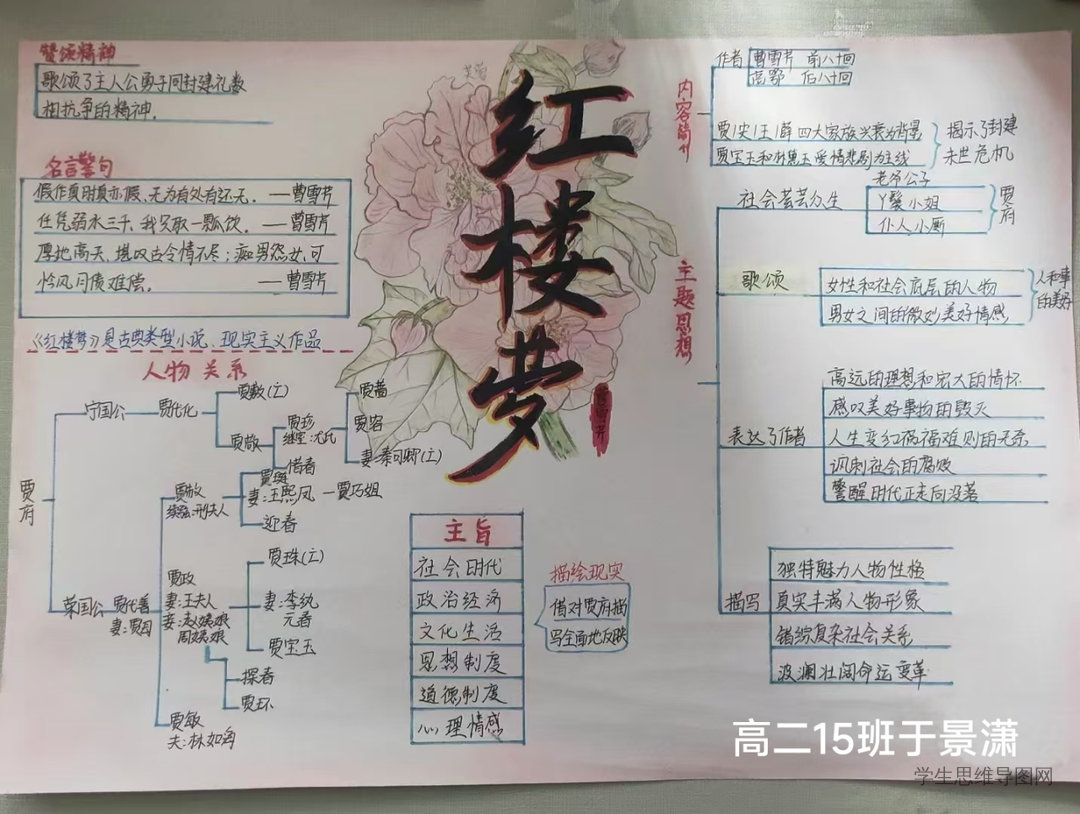 赞颂精神
歌颂了主人公勇于同封建礼数
相抗争的精神.
名言警句
假作真时真亦假,无为有处有还无. ——曹雪芹
任凭弱水三千,我只取一瓢饮. ——曹雪芹
厚地高天,堪叹古今情不尽;痴男怨女,可
怜风月债难偿. ——曹雪芹
《红楼梦》是古典类型小说、现实主义作品
人物关系
贾府
宁国公
贾代化
贾敷(亡)
贾敬
贾珍
继室:尤氏
惜春
贾蔷
贾容
妻:秦可卿(亡)
荣国公
贾代善
妻:贾母
贾赦
续弦:邢夫人
贾琏
妻:王熙凤
贾巧姐
迎春
贾政
妻:王夫人
妾:赵姨娘
周姨娘
贾珠(亡)
妻:李纨
元春
贾宝玉
探春
贾环
贾敏
夫:林如海
芙蓉
红楼梦
曹雪芹
主旨
社会时代
政治经济
文化生活
思想制度
道德制度
心理情感
描绘现实
借对贾府描
写全面地反映
内容简介
作者
曹雪芹 前八十回
高鄂 后八十回
贾|史|王|薛四大家族兴衰为背景
贾宝玉和林黛玉爱情悲剧为主线
揭示了封建
末世危机
主题思想
社会芸芸众生
老爷公子
丫鬟小姐
仆人小厮
贾府
歌颂
女性和社会底层的人物
男女之间的微妙美好情感
人和事
的美好
表达了作者
高远的理想和宏大的情怀
感叹美好事物的毁灭
人生变幻祸福难则的无奈
讽刺社会的腐败
警醒时代正走向没落
描写
独特魅力人物性格
真实丰满人物形象
错综复杂社会关系
波澜壮阔命运变革
高二15班于景潇
学生思维导图网